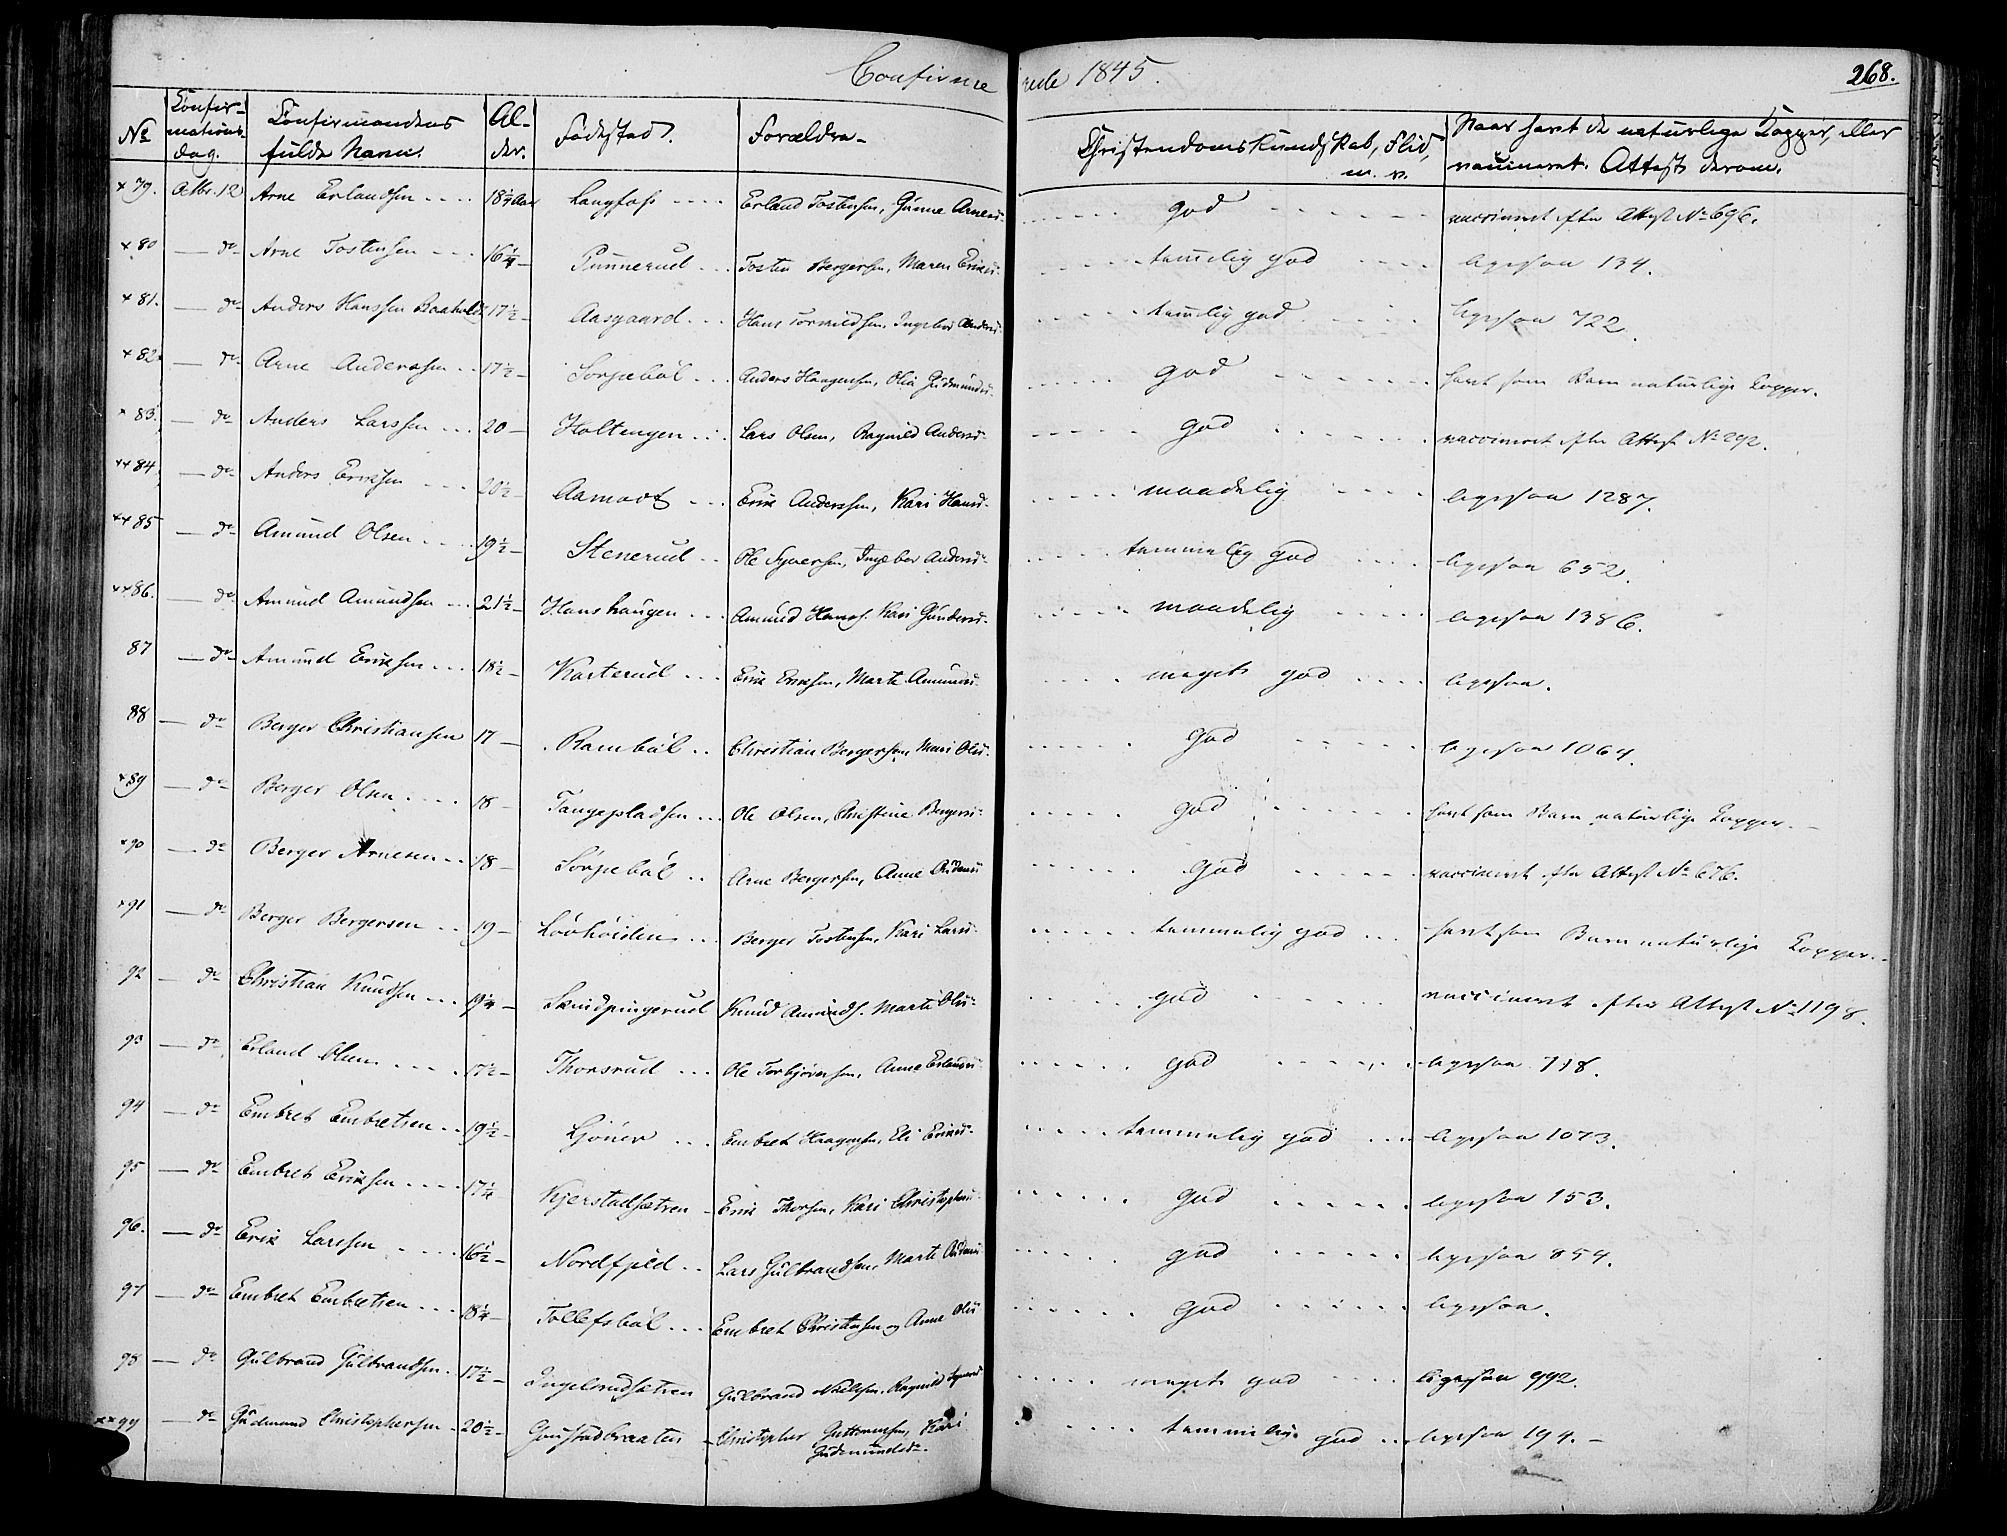 Confirmerede 1845. 268.
No Confirmations dag. Confirmandens fulde Navn. Alder. Fødested. Forældre Christendomskundskab, Flid, m. v. Naar havt de naturlige Kopper, eller vaccineret. Attest derom.
x 79. Octbr. 12 Arne Erlandsen 18 Langfos Erland Tostensen, Gunne Arnesd. god vaccineret efter Attest No 696.
x 80 — do Arne Tostensen 16¼ Tosten Bergersen, Maren Eriksd. temmelig god ligesaa 134.
x 81. — do Anders Hanssen 17½ Aasgaard Hans Ingebor Andersd. temmelig god ligesaa 722.
x 82 — do Arne Anderssen 17½ Sorpebøl Anders Haagensen, Olia Gudmundsd. god havt som Barn naturlige Kopper.
x 83. — do Anders Larssen 20 Holtengen Lars Olsen, Ragnild Andersd. god vaccineret efter Attest No 292.
xx 84 — do Anders Eriksen 20½ Aamodt Erik Anderssen, Kari Hansd. maadelig ligesaa 1287.
xx 85 — do Amund Olsen 19½ Stenerud Ole Syversen, Ingebor Andersd. temmelig god ligesaa 652.
xx 86. — do Amund Amundsen 21½ Hanshaugen Amund Hanss. Kari Gundersd. maadelig ligesaa 1386.
87 — do Amund Eriksen 18½ Karterud Erik Eriksen, Marte Amundsd. meget god ligesaa.
88 — do Berger Christiansen 17 Rambøl Christian Bergersen, Mari Olsd. god ligesaa 1064.
x 89 — do Berger Olsen 18 Tangepladsen Ole Olsen, Christine Bergersd. god havt som Barn naturlige Kopper.
x 90 — do Berger Arnesen 18 Sorpebøl Arne Bergersen, Anne god vaccineret efter Attest No 676.
x 91 — do Berger Bergersen 19 Løvhøiden Berger Tostensen, Kari Larsd. temmelig god havt som Barn naturlige Kopper.
92 — do Christian Knudsen 19¼ Skindpingerud Knud Amunds. Marte Olsd. god vaccineret efter Attest No 1198.
93 — do Erland Olsen 17½ Thorsrud Ole Torbjørnsen, Anne Erlandsd. god ligesaa 718.
94 — do Embret Embretsen 19½ Gjøner Embret Haagensen, Eli Eriksd. temmelig god ligesaa 1073.
95 — do Embret Eriksen 17¼ Kjerstadsætren Erik Thorsen, Kari Christophersd. god ligesaa 153.
96. — do Erik Larssen 16½ Nordfjeld Lars Gulbrandsen, Marte god ligesaa 854.
97 — do Embret Embretsen 18¼ Tollefsbøl Embret Christensen og Anne Olsd. god ligesaa.
98 — do Gulbrand Gulbrandsen 17½ Ingelsrudsætren Gulbrand Nielssen, Ragnild meget god ligesaa 992.
xx 99 — do Gudmund Christophersen 20½ Gaustadbraaten Christopher Guttormsen, Kari temmelig god ligesaa 194.
Gudmundsd.